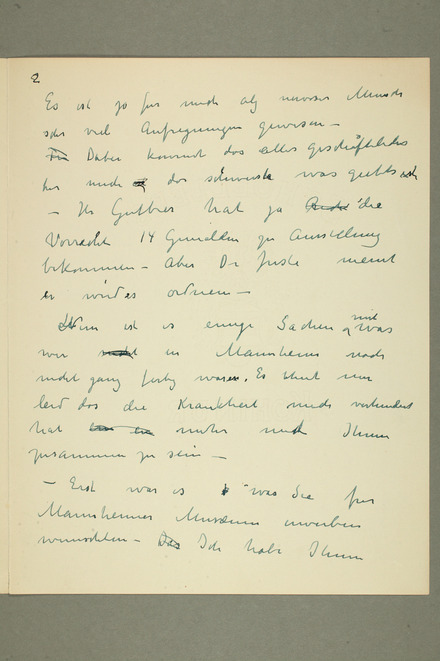 2
Es ist ja für mich als nervöser Mensch
sehr viel Aufregungen gewesen –
Dabei kommt das alles geschäftliches
für mich das schwerste was giebts
– Hr Gutbier hat ja die
Vorrecht 14 Gemälden zu Ausstellung
bekommen – Aber Dr meint
er würdes ordnen –
Nun ist es einige Sachen mit was
wir in Mannheim noch
nicht ganz fertig waren. Es thut mir
leid das die Krankheit mich verhindert
hat mehr mit Ihnen
zusammen zu sein –
– Erst war es was Sie für
Mannheimer Museum erwerben
wünschten – Ich habe Ihnen